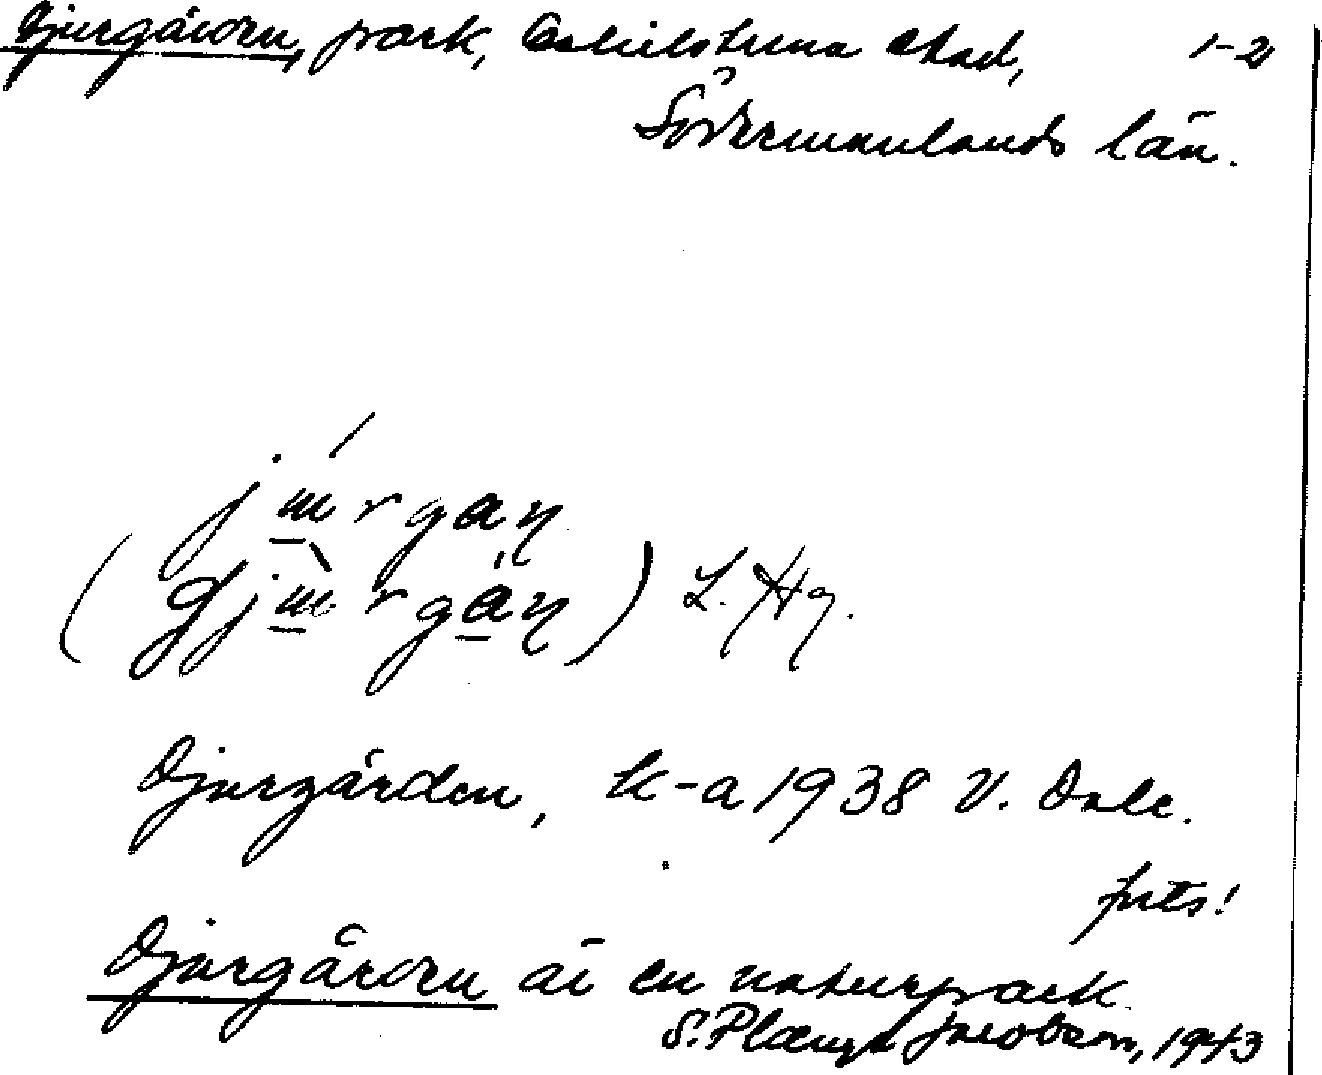 Djurgården, park, Eskilstuna stad, 1-2
Södermanlands län.
jɯrgaɳ
(Djɯrgaɳ) L. Hg.
Djurgården, k-a 1938 V. Dale.
forts!
Djurgården är en naturpark.
S. Jacobson, 1943